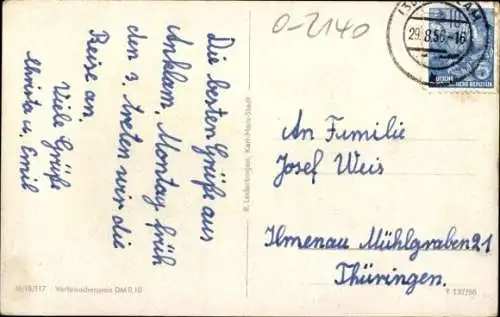 O-2140
29.8.56-16
DEUTSCHE
Die besten Grüße aus
Anklam. Montag früh
den 3. treten wir die
Reise an.
Viele Grüße
u. Emil
An Familie
Josef Weis
Ilmenau Mühlgraben 21
Thüringen.
R. Leiderbogen, Karl-Marx-Stadt
III/18/117 Verbraucherpreis DM 0,10
T 137/56